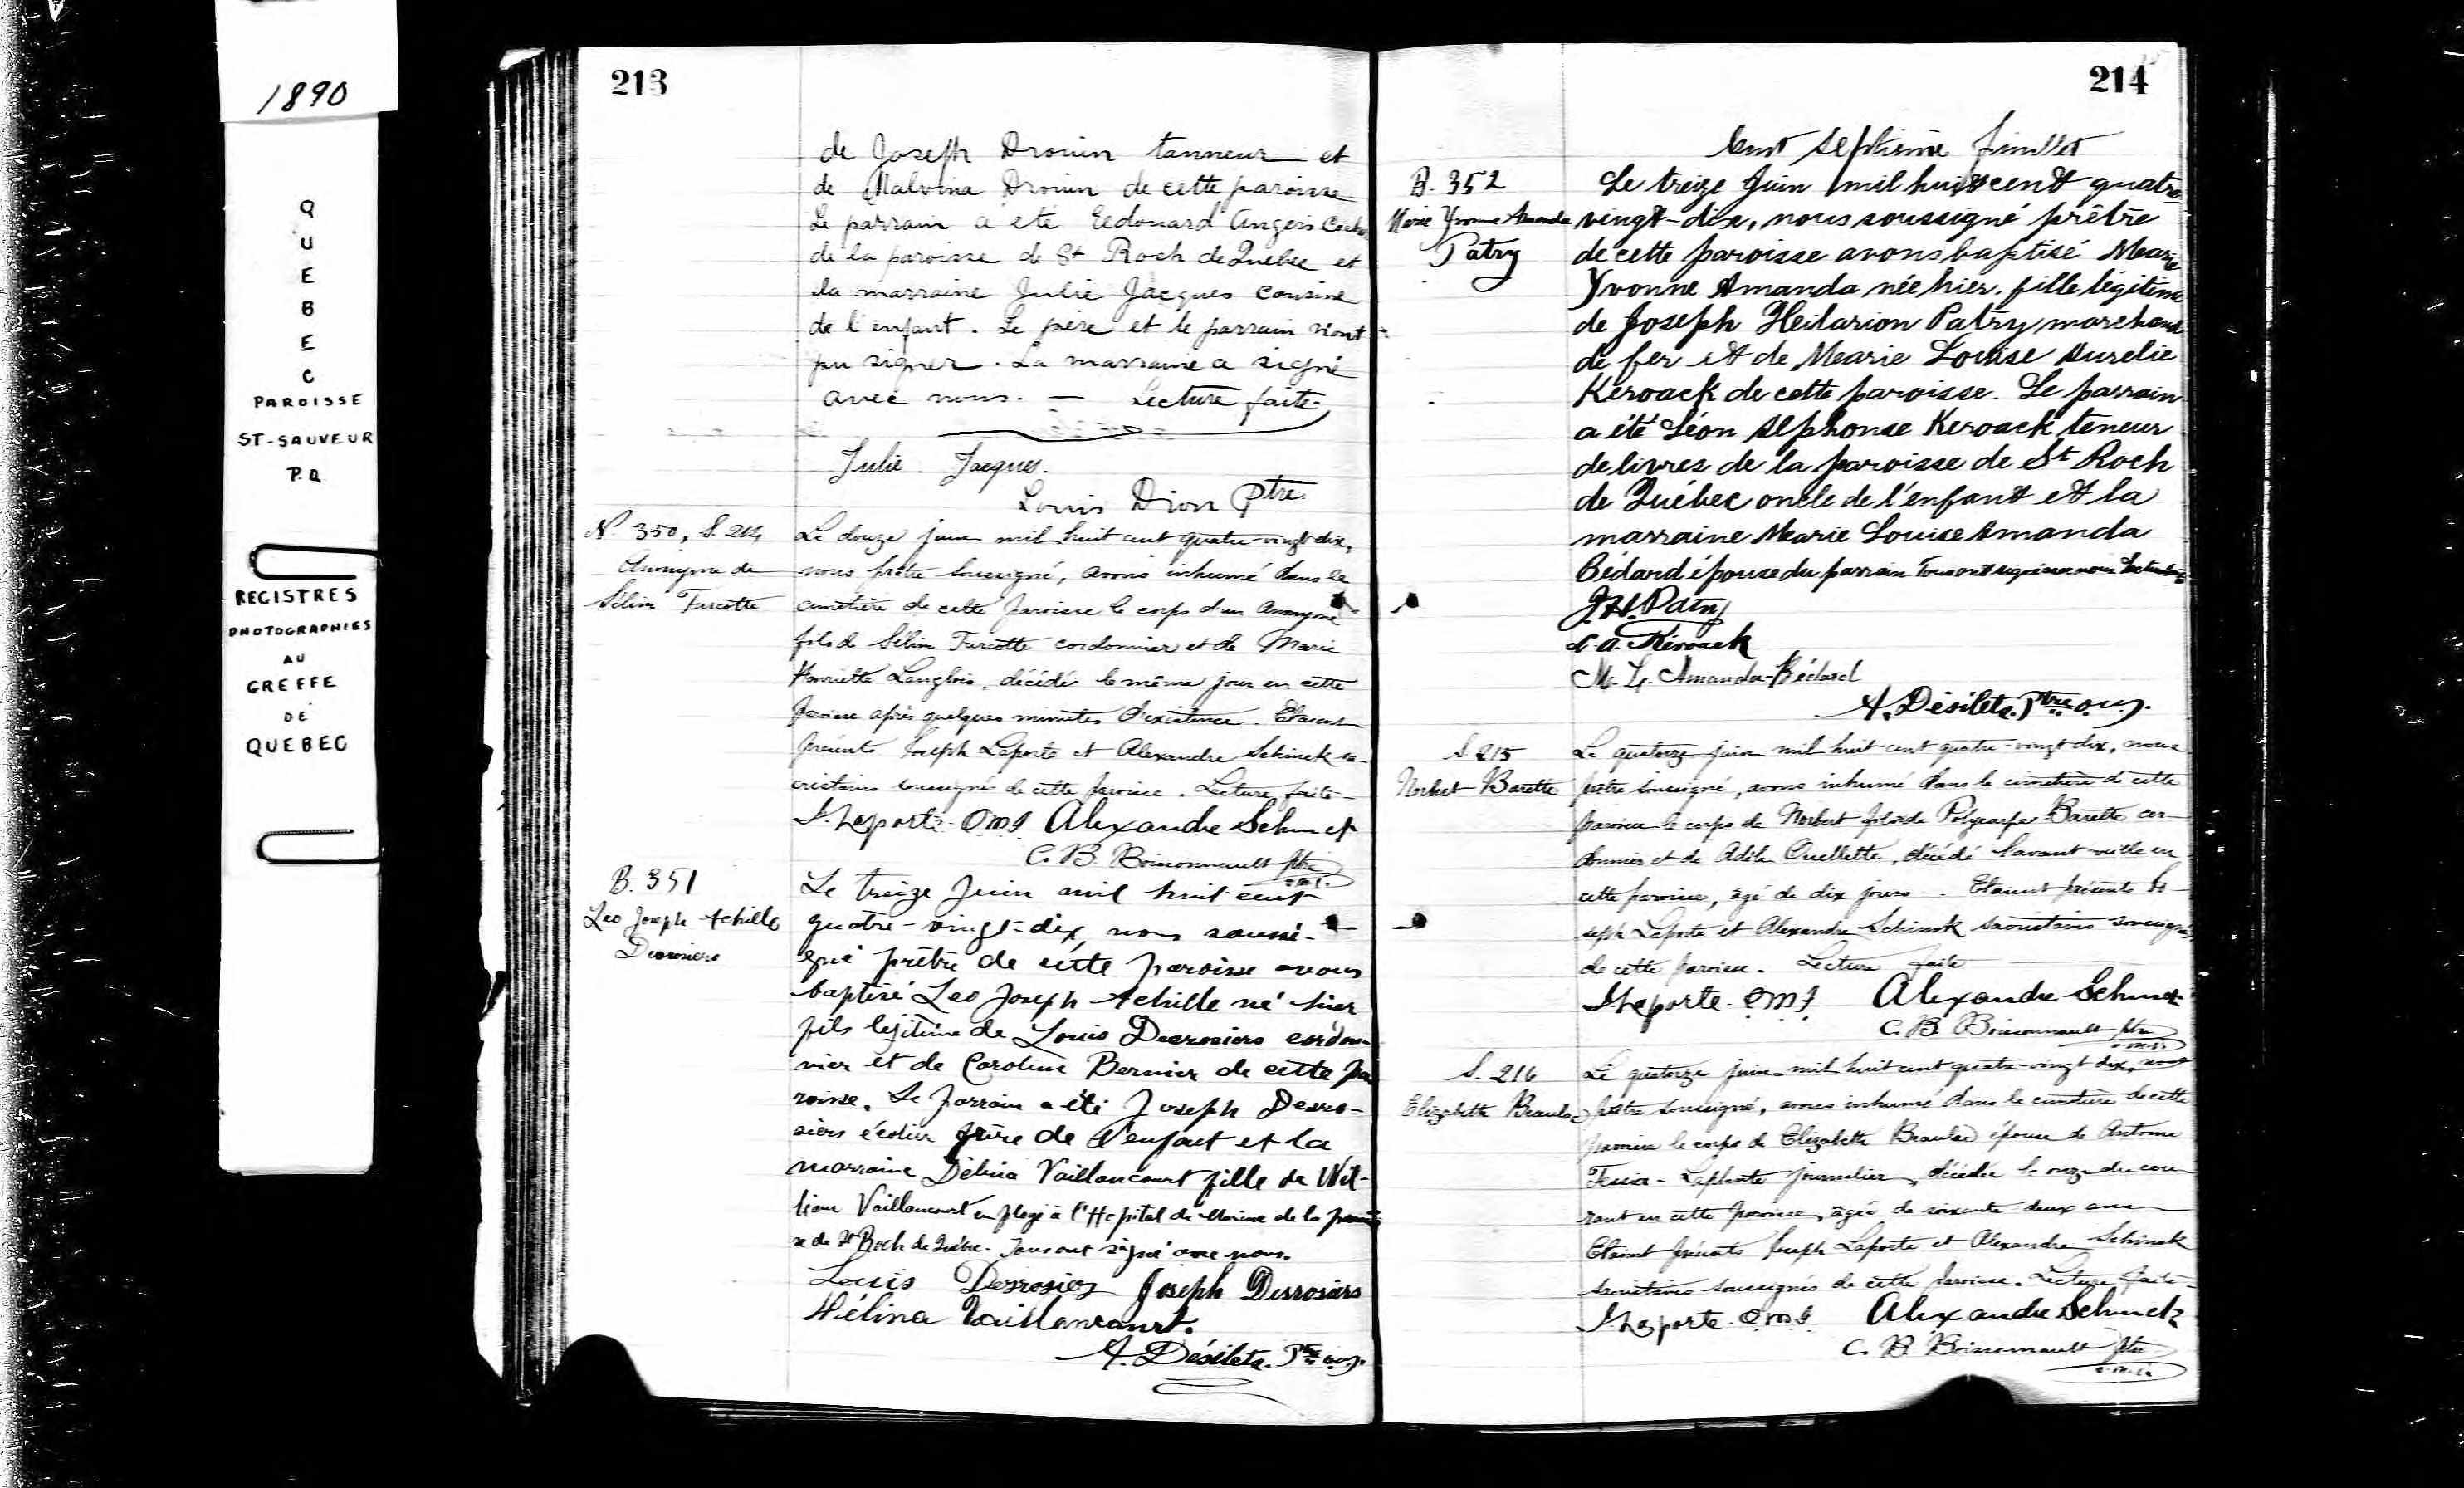 1890
QUEBEC
PAROISSE
ST-SAUVEUR
P.Q.
REGISTRES
PHOTOGRAPHIES
AU
GREFFE
DE
QUEBEC
213
de Joseph Drouin tanneur et
de Malvina Drouin de cette paroisse
Le parrain a eté Eedouard Angers
de la paroisse de St Roch de Québec et
la marraine Julie Jacques cousine
de l'enfant. Le père et le parrain n'ont
pu signer. La marraine a signé
avec nous. — Lecture faite.
Julie Jacques.
Louis Dion Ptre
N. 350, S. 214
Anonyme de
Sélim Turcotte
Le douze juin mil huit cent quatre-vingt dix,
nous prêtre soussigné, avons inhumé dans le
cimetière de cette paroisse le corps d'un Anonyme
fils de Sélim Turcotte cordonnier et de Marie
Henriette Langlois, décédé le même jour en cette
paroisse après quelques minutes d'existence. Etaient
présents Joseph Laporte et Alexandre Schinck sa-
cristains soussignés de cette paroisse. Lecture faite-
J. Laporte O.M.I. Alexandre Schinck
C. B. Boissonnault ptre
o.m.i.
B. 351
Leo Joseph Achille
Desrosiers
Le treize Juin mil huit cent
quatre-vingt-dix nous soussi-
gné prêtre de cette paroisse avons
baptisé Leo Joseph Achille né hier
fils légitime de Louis Desrosiers cordon-
nier et de Caroline Bernier de cette pa
roisse. Le parrain a été Joseph Desro-
siers écolier frère de l'enfant et la
marraine Délina Vaillancourt fille de Wil-
liam Vaillancourt employé à l'Hopital de Marine de la parois
se de St Roch de Québec. Tous ont signé avec nous.
Louis Desrosiers Joseph Desrosiers
Délina Vaillancourt.
A. Désilets. Ptre o.m.i.
214
Cent septième feuillet
B. 352
Marie Yvonne Amanda
Patry
Le treize Juin mil huit cent quatre
vingt-dix, nous soussigné prêtre
de cette paroisse avons baptisé Marie
Yvonne Amanda née hier. fille légitime
de Joseph Heilarion Patry marchand
de fer et de Marie Louise Aurelie
Keroack de cette paroisse. Le parrain
a été Léon Alphonse Keroack teneur
de livres de la paroisse de St Roch
de Québec oncle de l'enfant et la
marraine Marie Louise Amanda
Bédard épouse du parrain Tous ont signé avec nous
J.H. Patry
L. A. Kéroack
M. L. Amanda-Bédard
A. Désilets. Ptre o.m.i.
S. 215
Norbert Barette
Le quatorze juin mil huit cent quatre-vingt dix, nous
prêtre soussigné, avons inhumé dans le cimetière de cette
paroisse le corps de Norbert fils de Polycarpe Barette cor-
donnier et de Adèle Ouellette, décédé l'avant-veille en
cette paroisse, âgé de dix jours. Etaient présents Jo-
seph Laporte et Alexandre Schinck sacristains soussignés
de cette paroisse. Lecture faite
J. Laporte O.M.I. Alexandre Schinck
C. B. Boissonnault ptre
o.m.i.
S. 216
Elizabeth Beaulac
Le quatorze juin mil huit cent quatre-vingt dix, nous
prêtre soussigné, avons inhumé dans le cimetière de cette
paroisse le corps de Elizabeth Beaulac épouse de Antoine
Laplante journalier, décédée le onze du cou
rant en cette paroisse, âgée de soixante deux ans
Etaient présents Joseph Laporte et Alexandre Schinck
sacristains soussignés de cette paroisse. Lecture faite-
J. Laporte O.M.I. Alexandre Schinck
C. B. Boissonnault ptre
o.m.i.